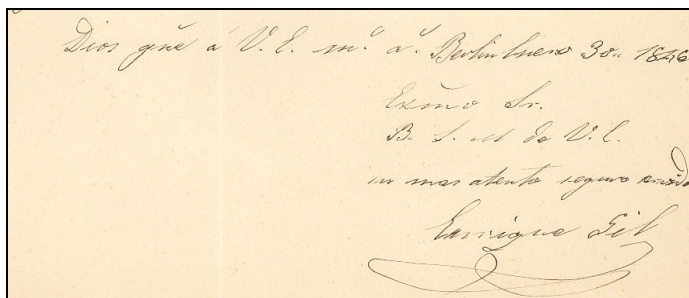 Dios gũe a V. E. m.ˢ a.ˢ Berlin Enero 30,, 1846
Exm̃o Sr.
B. L. M. de V. E.
su mas atento seguro servidor
Enrique Gil